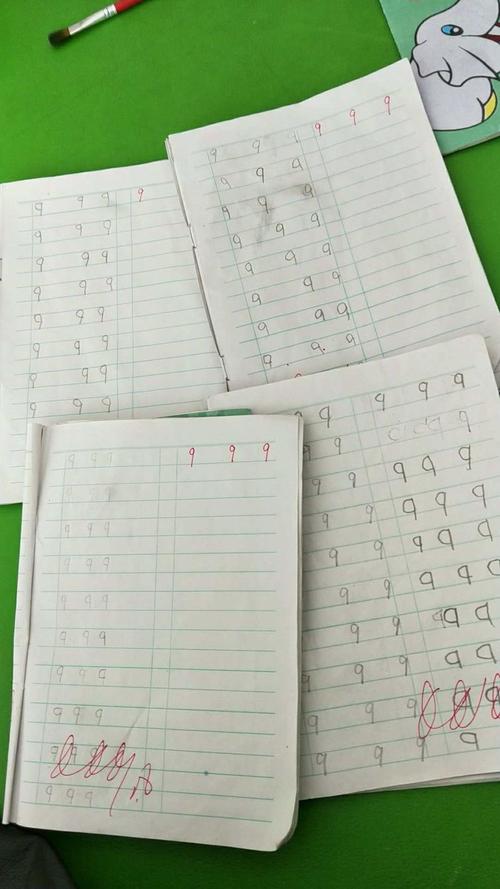 9 9 9 9
9 9 9
9 9 9
9 9 9
9 9 9
9 9 9
9 9 9
9 9 9
9 9 9 9 9 9
9 9 9
9 9 9
9 9 9
9 9 9
9 9 9
9 9 9
9 9 9
9 9 9 9 9 9
9 9 9
9 9 9
9 9 9
9 9 9
9 9 9
9 9 9
9 9 9
9 9 9
9 9 9 9 9
9 9 9
9 9 9 9 9
9 9 9 9 9
9 9 9 9 9
9 9 9 9 9
9 9 9 9
9 9 9 9
9 9 9 9 9
9 9 9
9 9 9 9